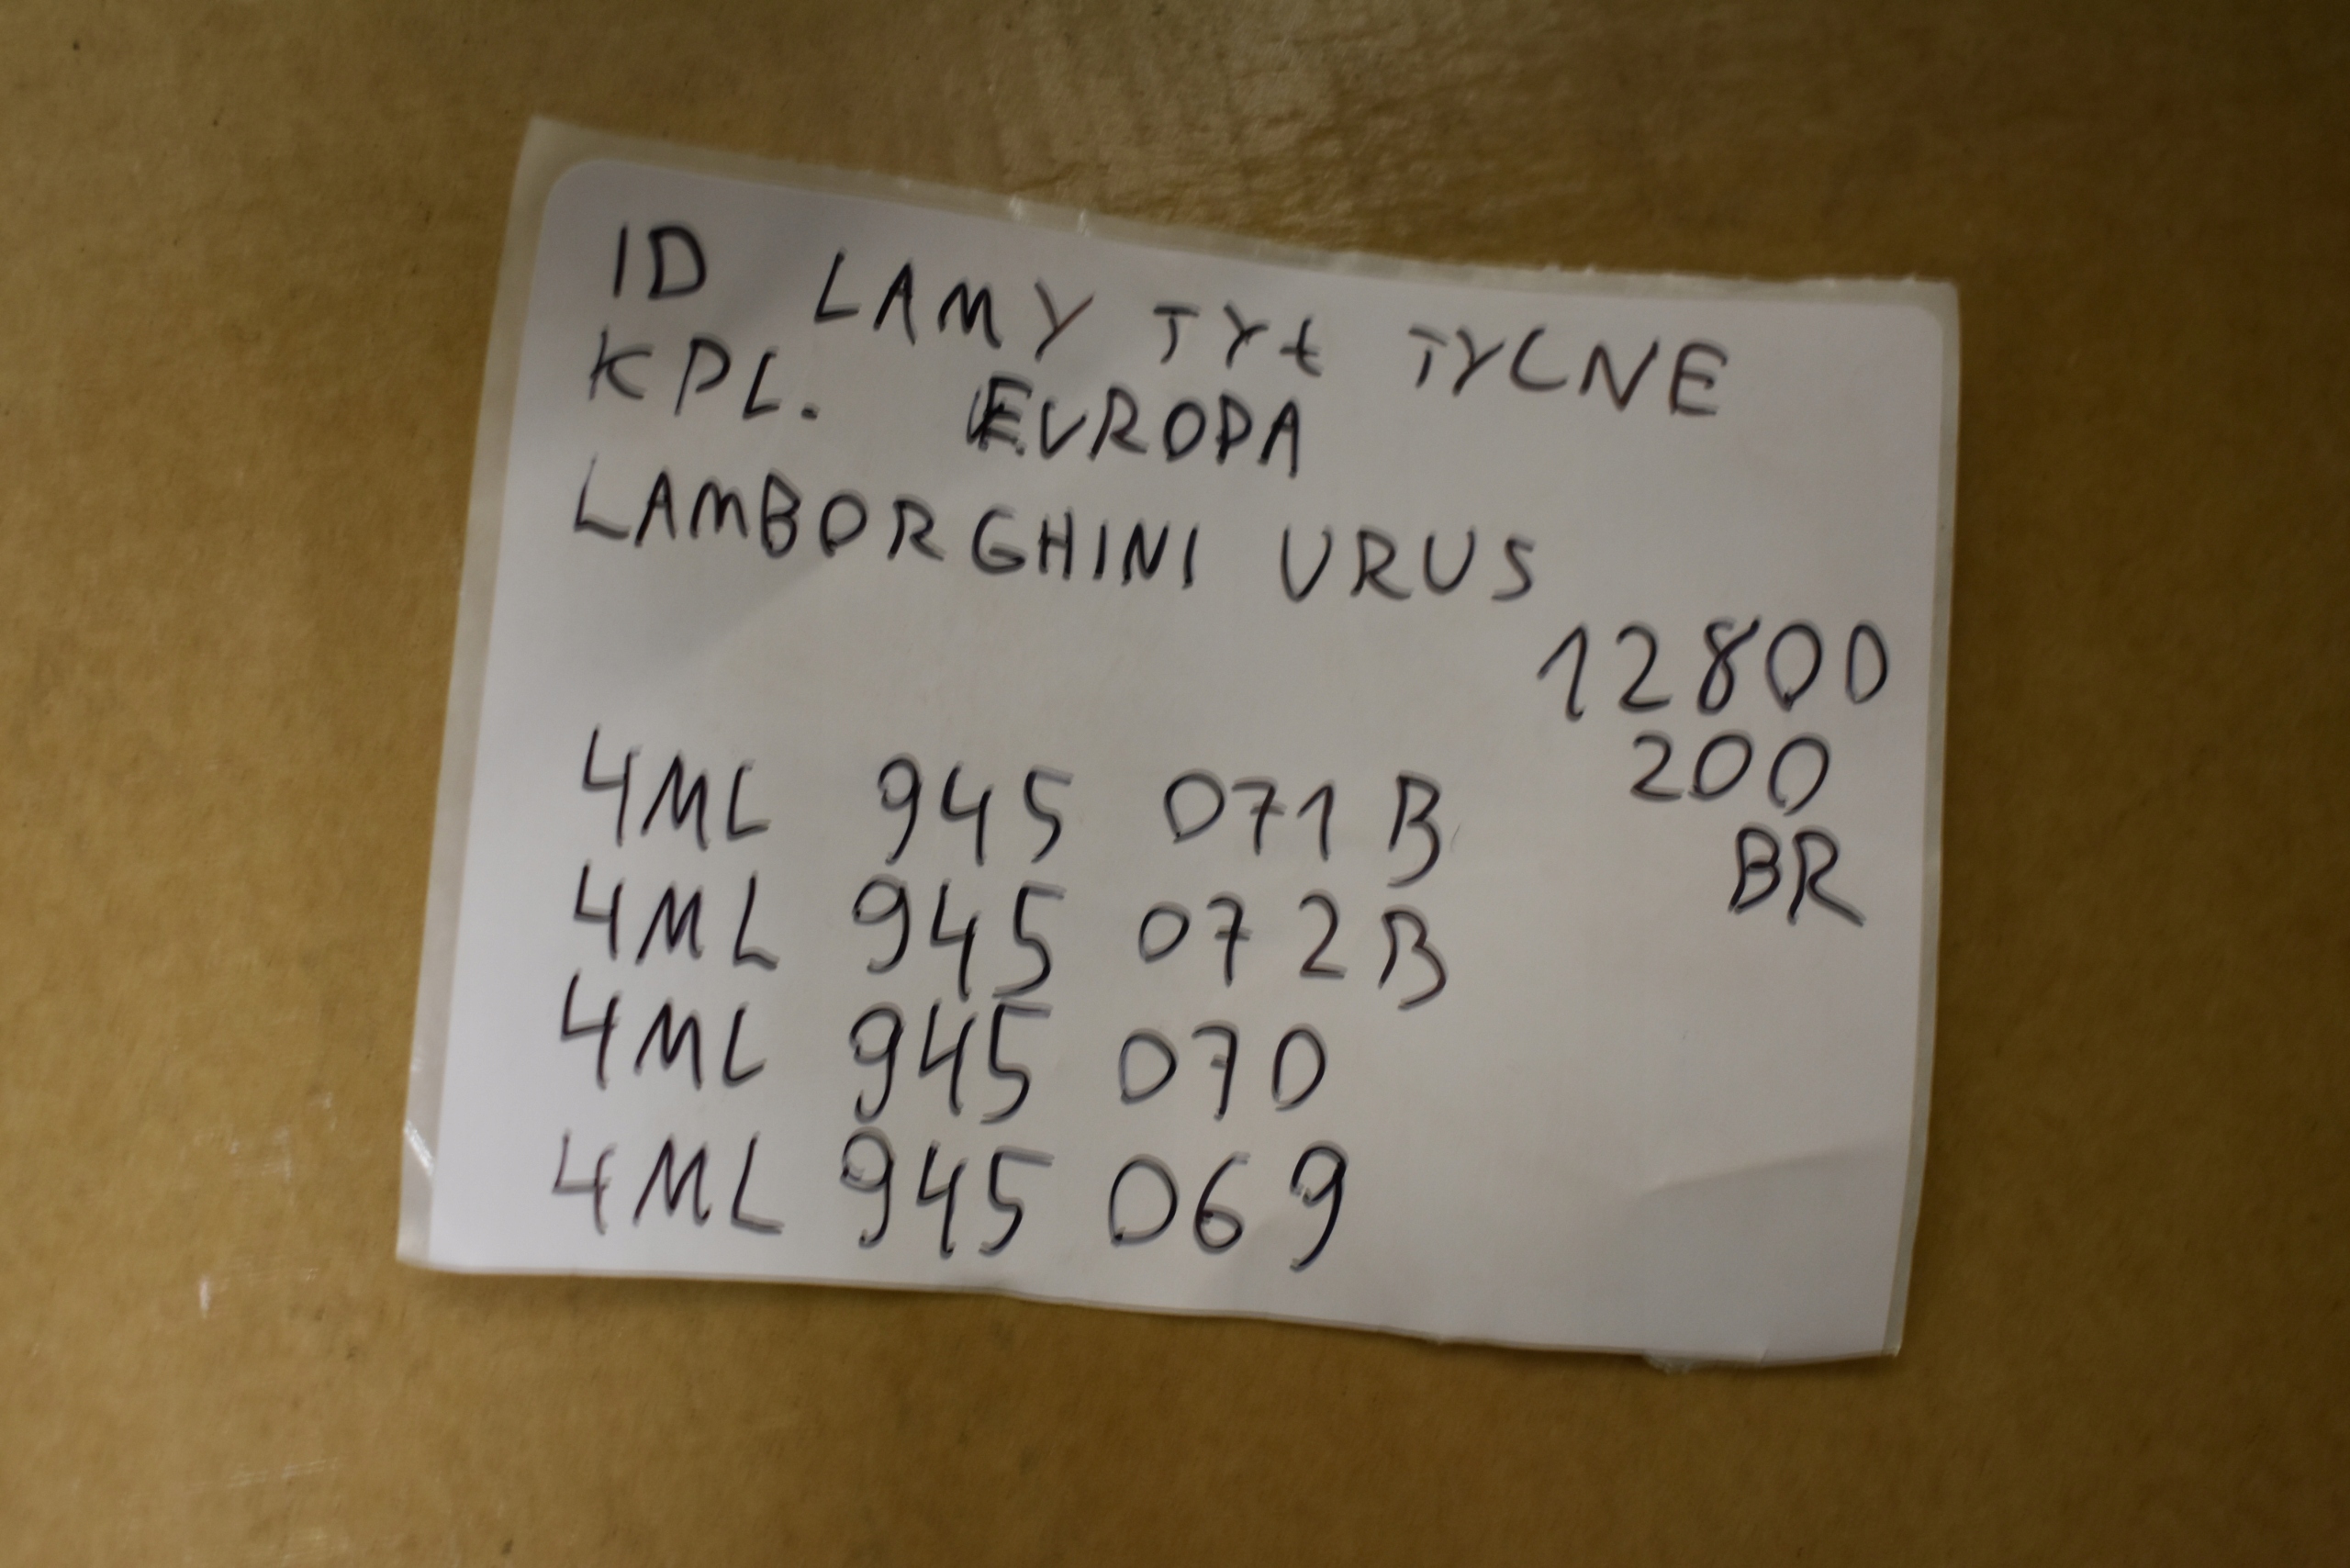 ID LAMY TYŁ TYLNE
KPL. EUROPA
LAMBORGHINI URUS
12800
200
BR
4ML 945 071 B
4ML 945 072 B
4ML 945 070
4ML 945 069